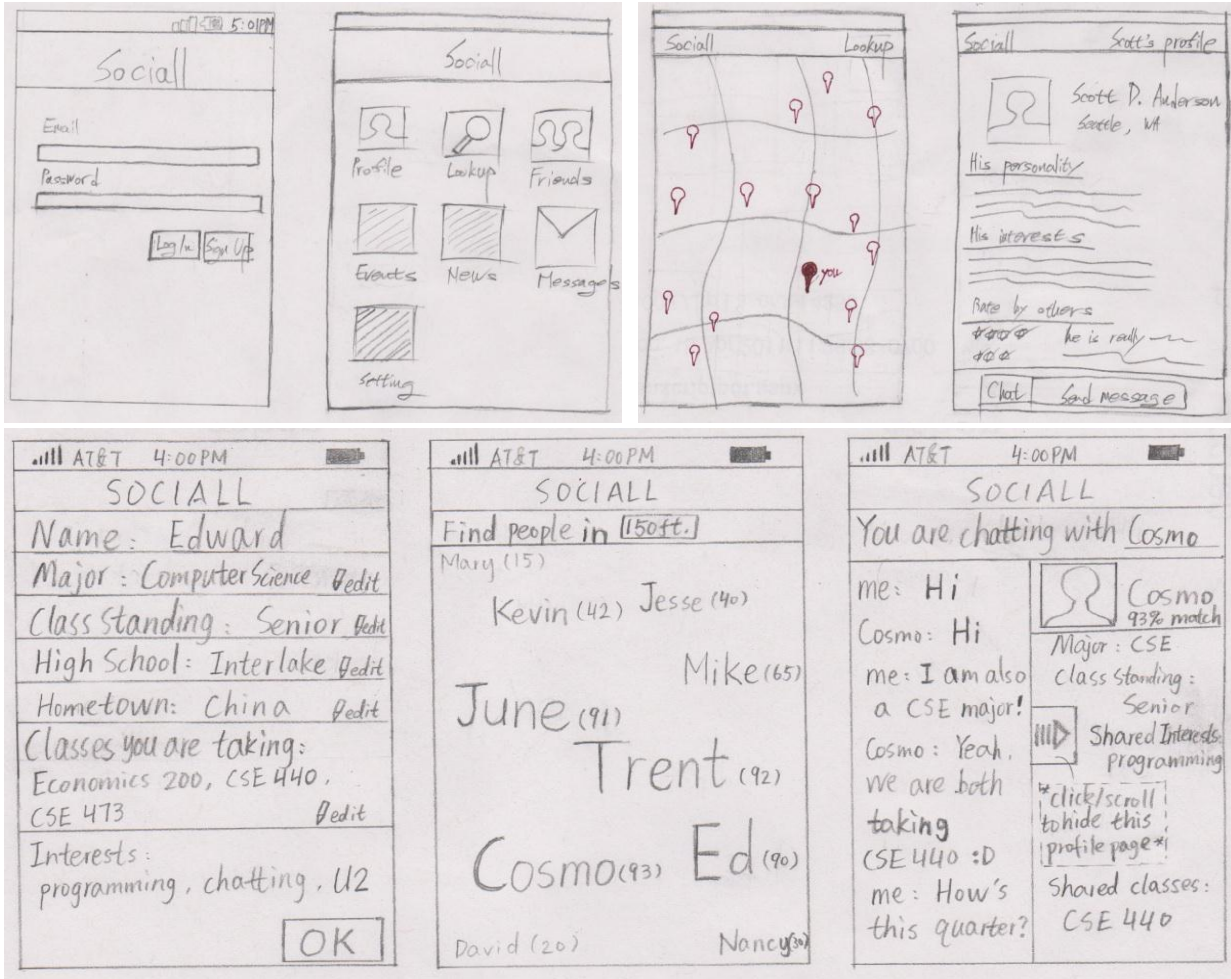 5:01PM
Sociall
Email
Password
Log In
Sign Up
Sociall
Profile
Lookup
Friends
Events
News
Messages
Setting
Sociall
Lookup
you
Sociall
Scott's profile
Scott D. Anderson
Seattle, WA
His personality
His interests
Rate by others
he is really
Chat
Send message
AT&T 4:00PM
SOCIALL
Name: Edward
Major: Computer Science edit
Class Standing: Senior edit
High School: Interlake edit
Hometown: China edit
Classes you are taking:
Economics 200, CSE 440,
CSE 473 edit
Interests:
programming, chatting, U2
OK
AT&T 4:00PM
SOCIALL
Find people in 150ft.
Mary (15)
Kevin (42) Jesse (40)
Mike (65)
June (91)
Trent (92)
Cosmo (93) Ed (90)
David (20) Nancy (30)
AT&T 4:00PM
SOCIALL
You are chatting with Cosmo
me: Hi
Cosmo: Hi
me: I am also
a CSE major!
Cosmo: Yeah,
we are both
taking
CSE 440 :D
me: How's
this quarter?
Cosmo
93% match
Major: CSE
Class Standing:
Senior
Shared Interests:
programming
*click/scroll
to hide this
profile page*
Shared classes:
CSE 440